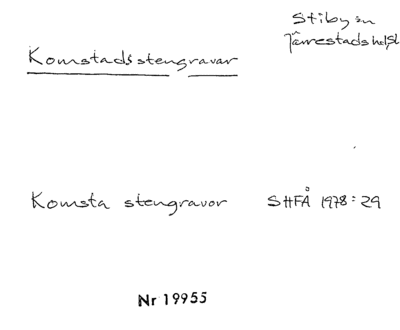 Stiby sn
Järrestads hd Sk
Komstads stengravar
Komsta stengravor SHFÅ 1978:29
Nr 19955